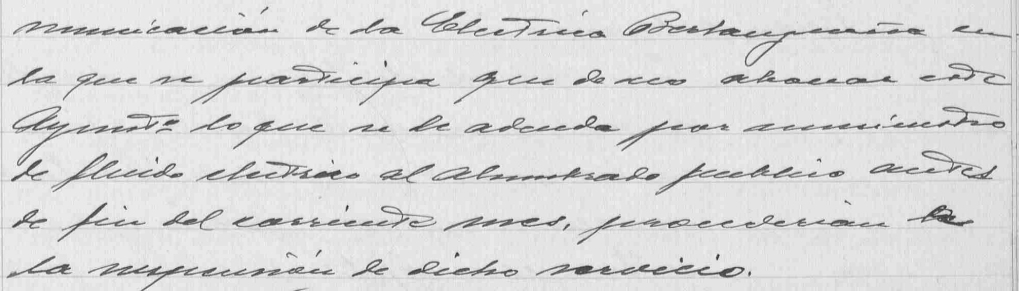 municación de la Electrica Bertanguesa en
la que se participa que de no abonar este
Aymtº lo que se le adeuda por suministro
de fluido electrico al alumbrado publico antes
de fin del corriente mes, procederian
la suspensión de dicho servicio.